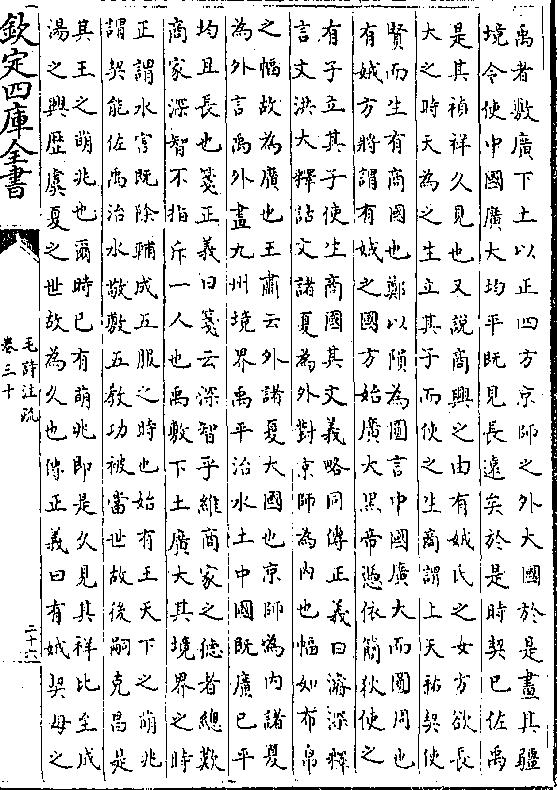 禹者敷廣下土以正四方京師之外大國於是畫其疆
境令使中國廣大均平既見長遠矣於是時契已佐禹
是其禎祥久見也又說商興之由有娀氏之女方欲長
大之時天為之生立其子而使之生商謂上天祐契使
賢而生有商國也鄭以隕為圓言中國廣大而圓周也
有娀方將謂有娀之國方始廣大黒帝憑依簡狄使之
有子立其子使生商國其文義略同傳正義曰濬深釋
言文洪大釋詁文諸夏為外對京師為内也幅如布帛
之幅故為廣也王肅云外諸夏大國也京師為内諸夏
為外言禹外畫九州境界禹平治水土中國既廣已平
均且長也箋正義曰箋云深智乎維商家之德者總歎
商家深智不指斥一人也禹敷下土廣大其境界之時
正謂水害既除輔成五服之時也始有王天下之萌兆
謂契能佐禹治水敬敷五教功被當世故後嗣克昌是
其王之萌兆也爾時已有萌兆即是久見其祥比至成
湯之興歷虞夏之世故為久也傳正義曰有娀契母之
欽定四庫全書
毛詩注疏
卷三十
二十六